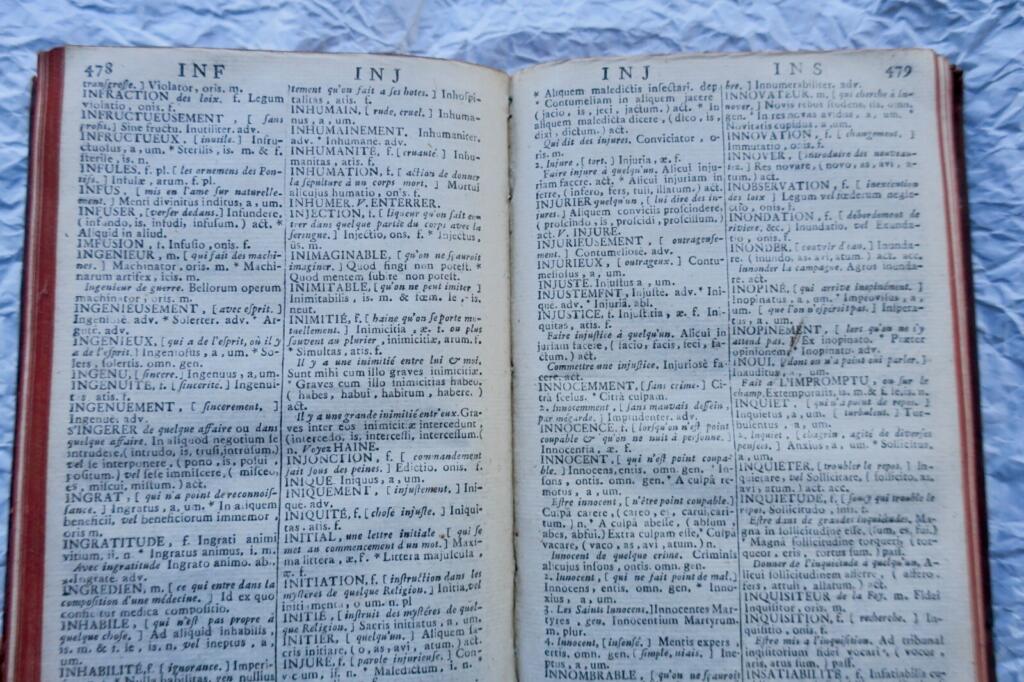 478 INF INJ
transgresse. ] Violator, oris. m.
INFRACTION des loix. f. Legum
violatio, onis. f.
INFRUCTUEUSEMENT, [ sans
profit. ] Sine fructu. Inutiliter. adv.
INFRUCTUEUX, [ inutile. ] Infru-
ctuosus, a, um. * Sterilis, is. m. & f.
sterile, is. n.
INFULES, f. pl. [ les ornemens des Pon-
tifs. ] Infulæ, arum. f. pl.
INFUS, [ mis en l'ame sur naturelle-
ment. ] Menti divinitus inditus, a, um.
INFUSER, [ verser dedans. ] Infundere,
( infundo, is, infudi, infusum. ) act. *
Aliquid in aliud.
IMFUSION, t. Infusio, onis. f.
INGENIEUR, m. [ qui fait des machi-
nes. ] Machinator, oris. m. * Machi-
narum artifex, icis. m.
Ingenieur de guerre. Bellorum operum
machinator, oris. m.
INGENIEUSEMENT, [ avec esprit. ]
Ingeniose. adv. * Solerter. adv. * Ar-
gute. adv.
INGENIEUX, [ qui a de l'esprit, où il y
a de l'esprit. ] Ingeniosus, a, um. * So-
lers, solertis. omn. gen.
INGENU, [ sincere. ] Ingenuus, a, um.
INGENUITE, t. [ sincerité. ] Ingenui-
tas, atis. f.
INGENUEMENT, [ sincerement, ]
Ingenuè. adv.
S'INGERER de quelque affaire ou dans
quelque affaire. In aliquod negotium se
intrudere, ( intrudo, is, trusi, intrusum. )
vel se interponere, ( pono, is, posui,
positum. ) vel sese immiscere, ( misceo,
es, miscui, mistum. ) act.
INGRAT, [ qui n'a point de reconnois-
sance. ] Ingratus, a, um. * In aliquem
beneficii, vel beneficiorum immemor,
oris. m.
INGRATITUDE, f. Ingrati animi
vitium, ii. n. * Ingratus animus, i. m.
Avec ingratitude Ingrato animo. ab.
* Ingratè. adv.
INGREDIEN, m. [ ce qui entre dans la
composition d'une médecine. ] Id ex quo
conficitur medica compositio.
INHABILE, [ qui n'est pas propre à
quelque chose. ] Ad aliquid inhabilis,
is. m. & f. le, is. n. vel ineptus, a,
um.
INHABILITÉ, f. [ ignorance. ] Imperi-
tement qu'on fait a ses hotes. ] Inhospi-
talitas, atis. f.
INHUMAIN, [ rude, cruel. ] Inhuma-
nus, a, um.
INHUMAINEMENT. Inhumaniter.
adv. * Inhumane. adv.
INHUMANITÉ, f. [ cruauté. ] Inhu-
manitas, atis. f.
INHUMATION, f. [ action de donner
la sépulture à un corps mort. ] Mortui
alicujus humatio, onis. f.
INHUMER. V. ENTERRER.
INJECTION, t. [ liqueur qu'on fait en-
trer dans quelque partie du corps avec la
seringue. ] Injectio, onis. f. * Injectus,
ûs. m.
INIMAGINABLE, [ qu'on ne sçauroit
imaginer. ] Quod fingi non potest. *
Quod mentem subire non potest.
INIMITABLE, [ qu'on ne peut imiter ]
Inimitabilis, is. m. & fœm. le, is.
neut.
INIMITIÉ, f. [ haine qu'on se porte mu-
tuellement. ] Inimicitia, æ. t. ou plus
souvent au plurier, inimicitiæ, arum. f.
* Simultas, atis. f.
Il y a une inimitié entre lui & moi.
Sunt mihi cum illo graves inimicitiæ.
* Graves cum illo inimicitias habeo,
( habes, habui, habitum, habere. )
act.
Il y a une grande inimitié entr'eux. Gra-
ves inter eos inimicitiæ intercedunt,
( intercedo, is, intercessi, intercessum. )
n. Voyez HAINE.
INJONCTION, f. [ commandement
fait sous des peines. ] Edictio, onis. f.
INIQUE. Iniquus, a, um.
INIQUEMENT, [ injustement. ] Ini-
que. adv.
INIQUITÉ, f. [ chose injuste. ] Iniqui-
tas, atis. f.
INITIAL, une lettre initiale, [ qui se
met au commencement d'un mot. ] Maxi-
ma littera, æ. f. * Littera majuscula,
æ. f.
INITIATION, f. [ instruction dans les
mystères de quelque Religion. ] Initia, vel
initiamenta, orum. n. pl.
INITIÉ, [ instruit des mystéres de quel-
que Religion. ] Sacris initiatus, a, um.
INITIER, [ quelqu'un. ] Aliquem sa-
cris initiare, ( o, as, avi, atum. ) act.
INJURE, f. [ parole injurieuse. ] Con-
* Maledictum, i. n. *
INJ INS 479
* Aliquem maledictis insectari. dep
* Contumeliam in aliquem jacere
( jacio, is, jeci, jactum, ) act. * in
aliquem maledicta dicere, ( dico, is,
dixi, dictum. ) act.
Qui dit des injures. Conviciator, o-
ris. m.
2. Injure, [ tort. ] Injuria, æ. f.
Faire injure à quelqu'un. Alicui inju-
riam facere. act. * Alicui injuriam in-
ferre, ( infero, fers, tuli, illatum. ) act.
INJURIER quelqu'un, [ lui dire des in-
jures. ] Aliquem conviciis proscindere,
( proscindo, is, proscidi, proscissum. )
act. V. INJURE.
INJURIEUSEMENT, [ outrageuse-
ment. ] Contumeliosè. adv.
INJURIEUX, [ outrageux. ] Contu-
meliosus, a, um.
INJUSTE. Injustus a, um.
INJUSTEMENT, Injuste. adv. * Ini-
que. adv. * Injuriâ. abl.
INJUSTICE, t. Injustitia, æ. f. * Ini-
quitas, atis. f.
Faire injustice à quelqu'un. Alicui in-
juriam facere, ( facio, facis, feci,
factum. ) act.
Commettre une injustice. Injuriose fa-
cere. act.
INNOCEMMENT, [ sans crime. ] Ci-
tra scelus. * Citrà culpam.
2. Innocemment, [ sans mauvais dessein,
par mégarde. ] Imprudenter. adv.
INNOCENCE, t. [ lorsqu'on n'est point
coupable & qu'on ne nuit à personne. ]
Innocentia, æ. f.
INNOCENT, [ qui n'est point coupa-
ble. ] Innocens, entis. omn. gen. * In-
sons, ontis. omn. gen. * A culpâ re-
motus, a, um.
Estre innocent, [ n'être point coupable. ]
Culpâ carere, ( careo, es, carui, cari-
tum. ) n. * A culpâ abesse, ( absum,
abes, abfui. ) Extra culpam esse. * Culpâ
vacare, ( vaco, as, avi, atum. ) n.
Innocent de quelque crime. Criminis
alicujus insons, ontis. omn. gen.
2. Innocent, [ qui ne fait point de mal. ]
Innocens, entis, omn. gen. * Inno-
xius, a, um.
3. Les Saints Innocens. ] Innocentes Mar-
tyres, gen. Innocentium Martyrum.
m. plur.
4. Innocent, [ insensé. ] Mentis expers,
ertis. omn. gen. ( simple, niais. ] Ine-
ptus, a, um.
INNOMBRABLE, [ qu'on ne sauroit
bre. ] Innumerabiliter. adv.
INNOVATEUR. m, [ qui cherche à in-
nover. ] Novis rebus studens, tis. omn.
gen. * In res novas avidus, a, um.
Novitatis cupidus, a, um.
INNOVATION, f. [ changement. ]
Immutatio, onis. f.
INNOVER, [ introduire des nouveau-
tez. ] Res novare, ( novo, as, avi, a-
tum. ) act.
INOBSERVATION, f. [ inexecution
des loix ] Legum vel fœderum negle-
ctio, onis. f.
INONDATION, f. [ débordement de
riviere, &c. ] Inundatio. vel Exunda-
tio, onis. f.
INONDER, [ couvrir d'eau. ] Inunda-
re. ( inundo, as, avi, atum. ) act. acc.
inonder la campagne. Agros inunda-
re. act.
INOPINÉ, [ qui arrive inopinément. ]
Inopinatus, a, um. * Improvisus, a,
um. [ que l'on n'esperoit pas. ] Insperá-
tus, a, um.
INOPINEMENT, [ lors qu'on ne s'y
attend pas. ] Ex inopinato. * Præter
opinionem. * Inopinatò. adv.
INOUI, [ dont on n'a point oui parler. ]
Inauditus, a, um.
Fait à L'IMPROMPTU, ou sur le
champ. Extemporalis, is. m. & f. le, is. n.
INQUIET, [ qui n'a point de repos. ]
Inquietus, a, um. [ turbulent. ] Tur-
bulentus, a, um.
2. Inquiet, [ chagrin, agité de diverses
pensées. ] Anxius, a, um. * Sollicitus,
a, um.
INQUIETER, [ troubler le repos. ] In-
quietare, vel Sollicitare, ( sollicito, as,
avi, atum. ) act. acc.
INQUIETUDE, f. [ soucy qui trouble le
repos. Sollicitudo, inis. f.
Estre dans de grandes inquietudes. Ma-
gna in sollicitudine esse, ( sum, es, fui. )
* Magnâ sollicitudine torqueri, ( tor-
queor, eris, tortus sum. ) pass.
Donner de l'inquietude à quelqu'un. A-
licui sollicitudinem afferre, ( affero,
fers, attuli, allatum. ) act.
INQUISITEUR de la Foy. m. Fidei
Inquisitor, oris. m.
INQUISITION, f. [ recherche. ] In-
quisitio, onis. f.
Estre mis a l'inquisition. Ad tribunal
inquisitorum fidei vocari, ( vocor,
aris, atus sum. ) pass.
INSATIABILITÉ, f. Insatiabilis cu-